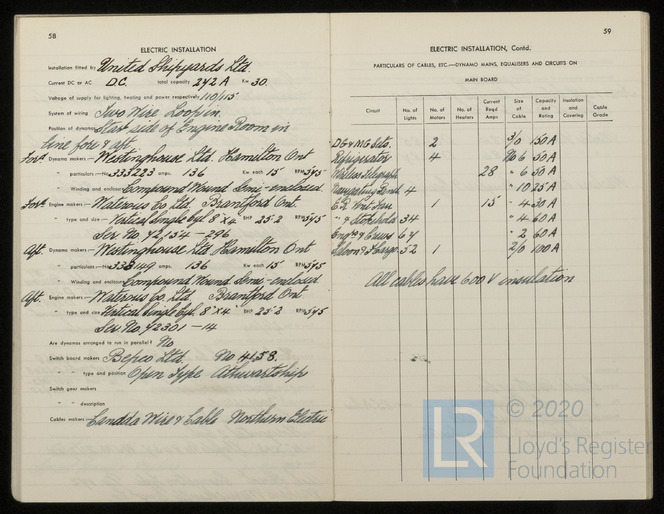 58
ELECTRIC INSTALLATION
Installation fitted by United Shipyards Ltd.
Current DC or AC D.C. total capacity 272A Kw 30.
Voltage of supply for lighting, heating and power respectively 110/115
System of wiring Two Wire Loop in.
Position of dynamos Star'd side of Engine Room in
line for'd & aft.
For'd Dynamo makers - Westinghouse Ltd. Hamilton Ont
" particulars - No 333223 amps. 136 Kw each 15 RPM 545
" Winding and enclosure Compound Wound Semi-enclosed
For'd Engine makers - Waterous Co. Ltd. Brantford Ont.
" type and size - Vertical Single Cyl. 8" x 4" BHP 25.2 RPM 545
Ser No 42134 - 296
Aft. Dynamo makers - Westinghouse Ltd Hamilton Ont
" particulars - No amps. 136 Kw each 15 RPM 545
" Winding and enclosure Compound Wound Semi-enclosed
Aft. Engine makers - Waterous Co. Ltd. Brantford Ont
" type and size Vertical Single Cyl. 8" x 4" BHP 25.2 RPM 545
Ser No 42301 - 14
Are dynamos arranged to run in parallel? No
Switch board makers Bepco Ltd. No 4158.
" " type and position Open Type Athwartship
Switch gear makers
" " description
Cables makers - Canada Wire & Cable Northern Electric
59
ELECTRIC INSTALLATION, Contd.
PARTICULARS OF CABLES, ETC.—DYNAMO MAINS, EQUALISERS AND CIRCUITS ON
MAIN BOARD
Circuit No. of Lights No. of Motors No. of Heaters Current Reqd Amps Size of Cable Capacity and Rating Insulation and Covering Cable Grade
D.G. & M.G. Sets. 2 3/0 150 A
Refrigerator 4 No 6 50 A
Wireless Telegraph 28 " 6 50 A
Navigating 4 " 10 25 A
E.R. Vent Fans 1 15 " 4 50 A
" & Stokehold 34 " 4 60 A
Engrs & Crews 64 " 2 60 A
& Cargo 52 1 2/0 100 A
All cables have 600 V insulation
© 2020
LR
Lloyd's Register
Foundation